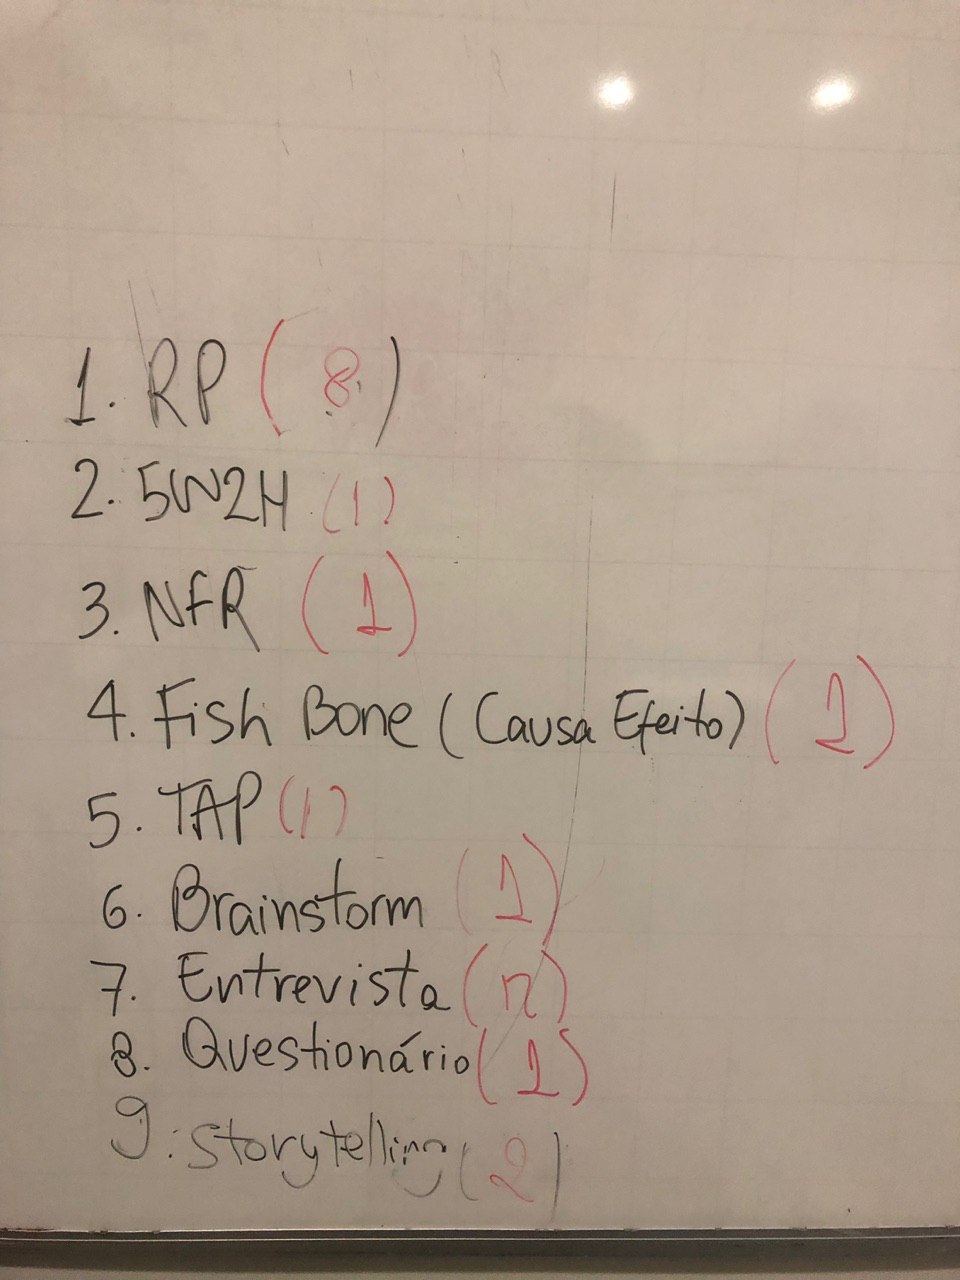 1. RP (8)
2. 5W2H (1)
3. NFR (1)
4. Fish Bone (Causa Efeito) (1)
5. TAP (1)
6. Brainstorm (1)
7. Entrevista (n)
8. Questionário (1)
9. Storytelling (2)